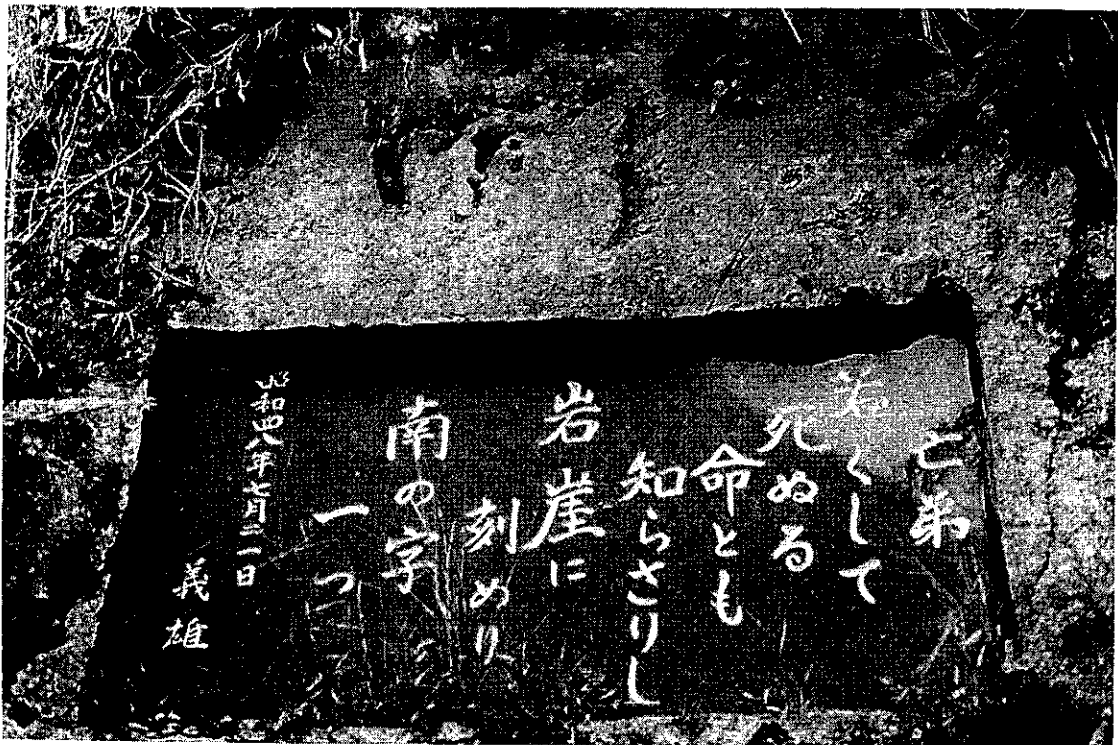 亡弟
若くして
死ぬる
命とも
知らさりし
岩崖に
刻めり
南の字
一つ
昭和四八年七月二一日
義雄